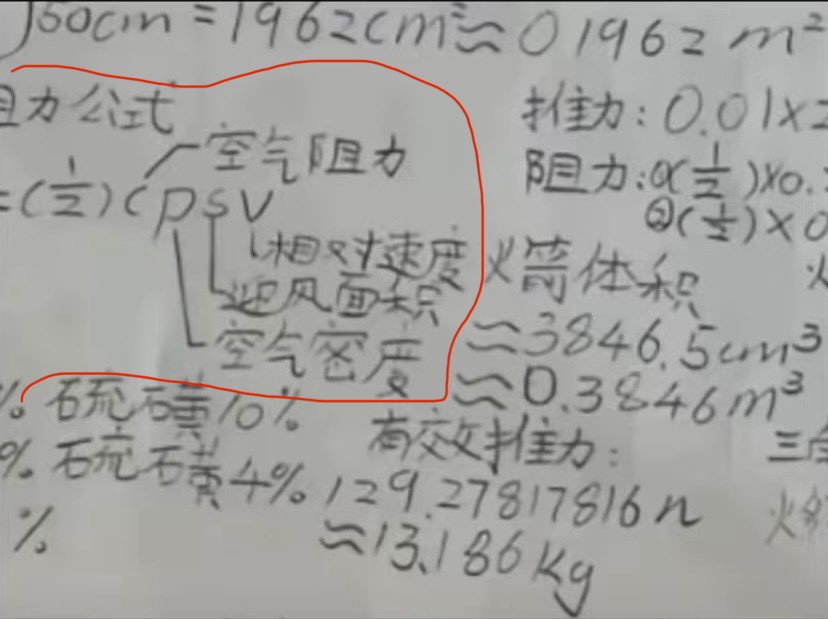 )50cm=1962cm²≈0.1962m²
阻力公式
空气阻力
=(1/2)CρSV
相对速度
迎风面积
空气密度
推力:0.01×2
阻力:①(1/2)×0.
②(1/2)×0
火箭体积
≈3846.5cm³
≈0.3846m³
% 石硫石黄10%
% 石硫石黄4%
%
有效推力:
129.27817816n
≈13.186Kg